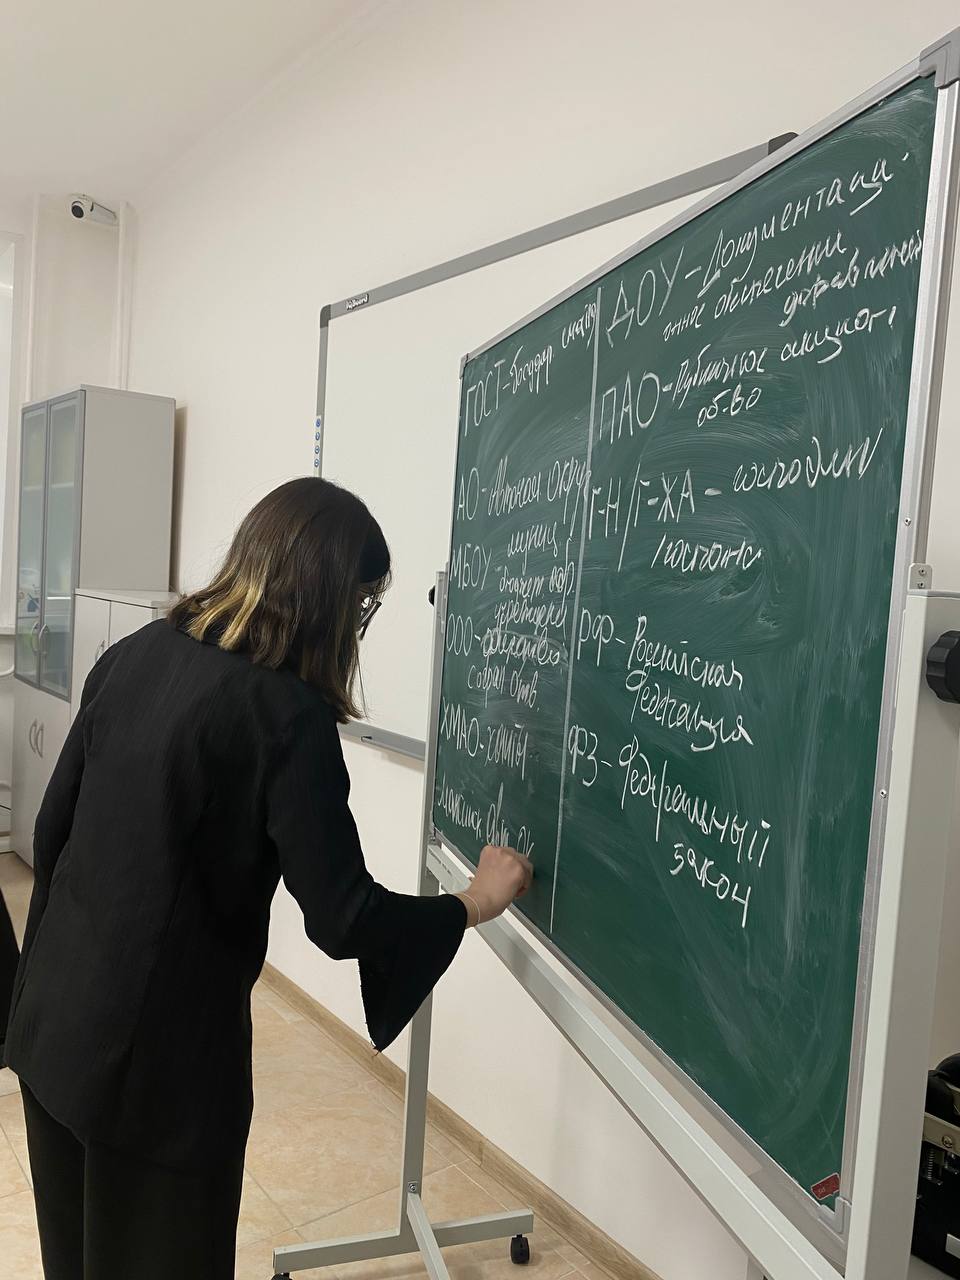 ГОСТ - Государ. стандар
АО - Автоном. округ
МБОУ - муниц
бюджет. обр.
учрежден
ООО - общество
с огран. отв.
ХМАО - ханты
мансийск. авт. ок
ДОУ - Документаци-
онное обеспечение
управления
ПАО - Публичное акцион.
об-во
Г-Н/Г-ЖА - господин
/госпожа
РФ - Российская
Федерация
ФЗ - Федеральный
закон